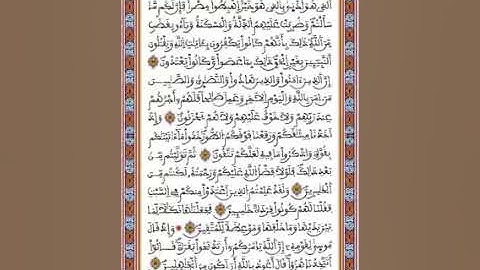 الذي هو أدنى بالذي هو خير اهبطوا مصرا فإن لكم ما
سألتم وضربت عليهم الذلة والمسكنة وباءو بغضب
من الله ذلك بأنهم كانوا يكفرون بـٔايت الله ويقتلون
النبيـٕين بغير الحق ذلك بما عصوا وكانوا يعتدون
إن الذين ءامنوا والذين هادوا والنصرى والصبين
من ءامن بالله واليوم الاخر وعمل صلحا فلهم أجرهم
عند ربهم ولا خوف عليهم ولا هم يحزنون وإذ
أخذنا ميثقكم ورفعنا فوقكم الطور خذوا ما ءاتينكم
بقوة واذكروا ما فيه لعلكم تتقون ثم توليتم من
بعد ذلك فلولا فضل الله عليكم ورحمته لكنتم من
الخسرين ولقد علمتم الذين اعتدوا منكم في السبت
فقلنا لهم كونوا قردة خسـٕين فجعلنها نكلا لما
بين يديها وما خلفها وموعظة للمتقين وإذ قال
موسى لقومه إن الله يأمركم أن تذبحوا بقرة قالوا
أتتخذنا هزؤا قال أعوذ بالله أن أكون من الجهلين